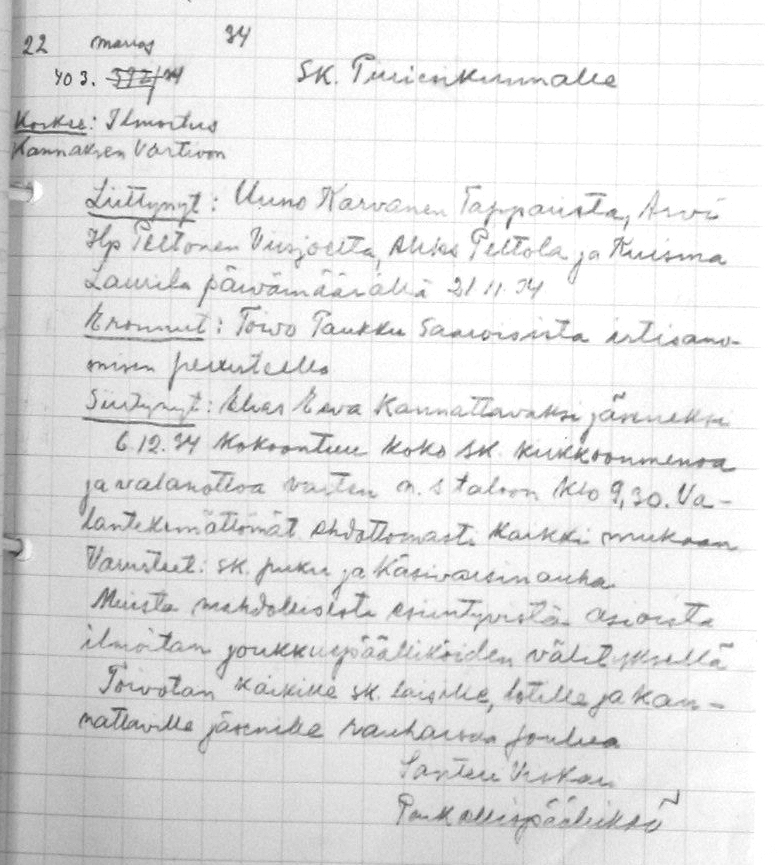 22 marras 34
403. 592/34 SK. Piirinkunnalle
Koskee: Ilmoitus
Kannaksen Vartioon
Liittynyt: Uuno Karvanen Tapparista, Arvi
Hj. Peltonen Viisjoelta, Peltola ja Kuisma
Laurila päivämäärällä 21.11.34
Eronnut: Toivo Paukku irtisano-
misen perusteella
Siirtynyt: Eeva Kannattavaksi jäseneksi
6.12.34 Kokoontuu koko SK. kirkkoonmenoa
ja valanottoa varten n.s taloon klo 9,30. Va-
lantekemättömät ehdottomasti kaikki mukaan
Varusteet: SK. puku ja Käsivarsinauha
Muista mahdollisesti esiintyvistä asioista
ilmoitan joukkuepäälliköiden välityksellä
Toivotan kaikille SK. laisille, lotille ja kan-
nattaville jäsenille rauhaisaa Joulua
Santeri
Paikallispäällikkö